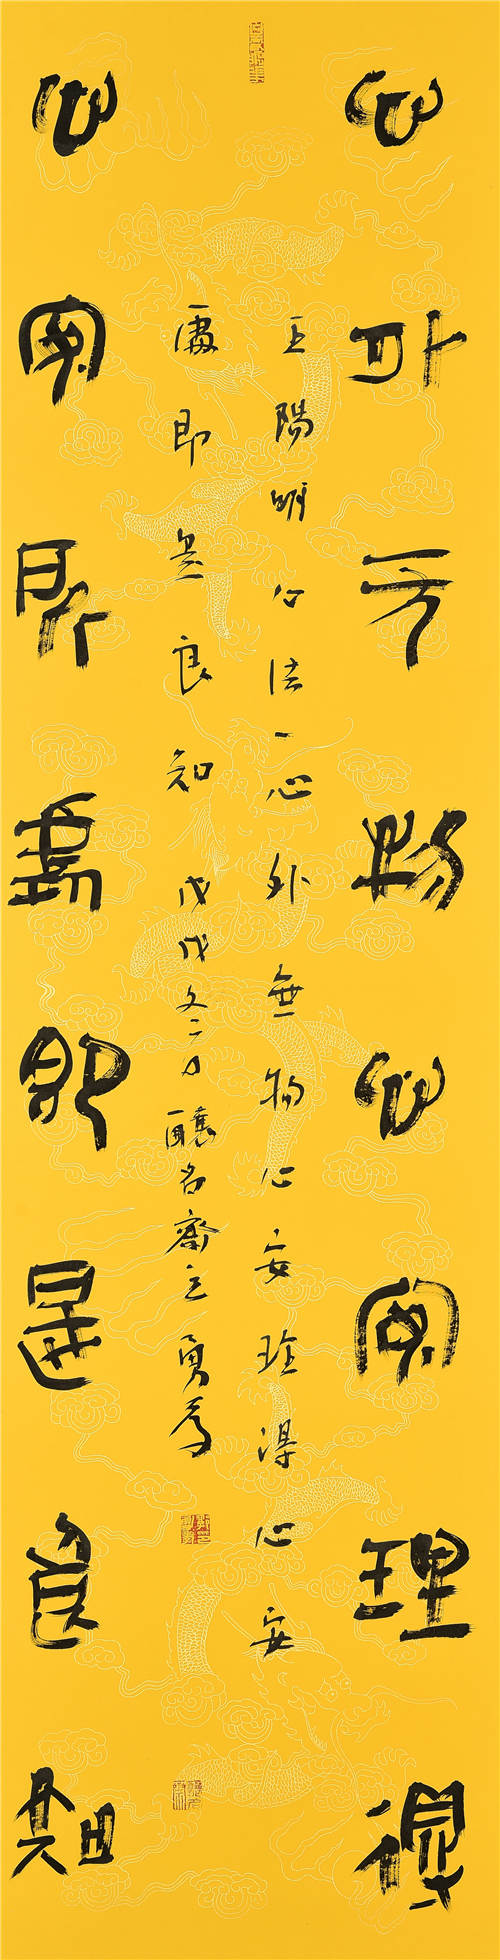 心外无物心安理得
王陽明心法一心外無物心安理得心安
處即是良知戊戌冬二月
心安所處即是良知